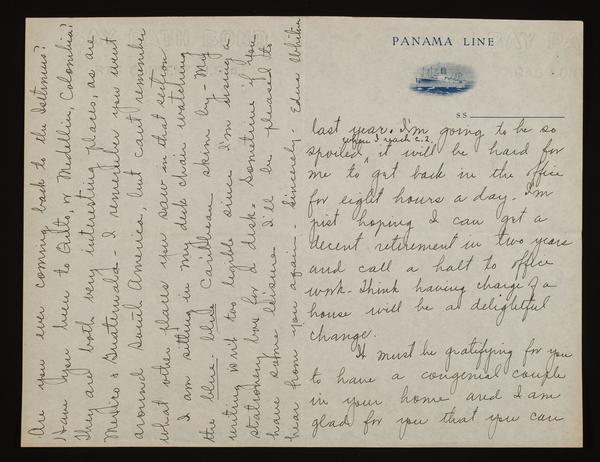 PANAMA LINE
SS
last year. I'm going to be so
when I reach C.Z.
spoiled, it will be hard for
me to get back in the office
for eight hours a day. I'm
just hoping I can get a
decent retirement in two years
and call a halt to office
work. Think having charge of a
house will be a delightful
change.
It must be gratifying for you
to have a congenial couple
in your home and I am
glad for you that you can
Are you ever coming back to the Isthmus?
Have you been to Quito, or Medellin, Colombia?
They are both very interesting places, as are
Mexico & Guatemala - I remember you went
around South America, but can't remember
what other places you saw in that section.
I am sitting in my deck chair watching
the blue, blue Caribbean skim by - My
writing isn't too legible since I'm using a
stationery box for a desk. Sometime if you
have some leisure I'll be pleased to
hear from you again. Sincerely - Edna Whitver